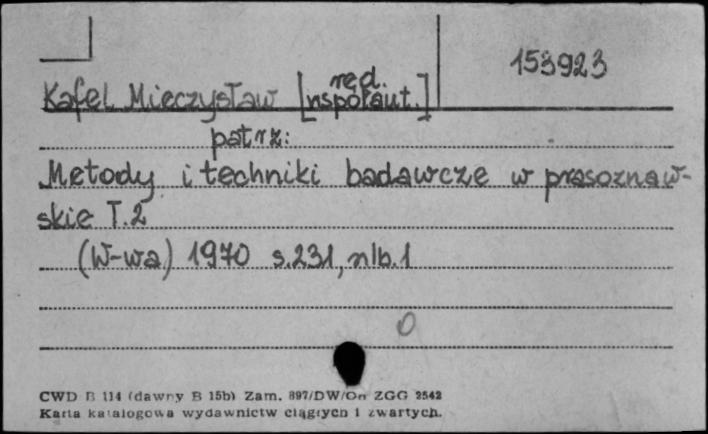 153923
red.
Kafel Mieczysław [współaut.]
patrz:
Metody i techniki badawcze w prasoznaw-
skie T.2
(W-wa) 1970 s.231, nlb.1
0
CWD B 114 (dawny B 15b) Zam. 897/DW/On ZGG 2542
Karta katalogowa wydawnictw ciągłych i zwartych.